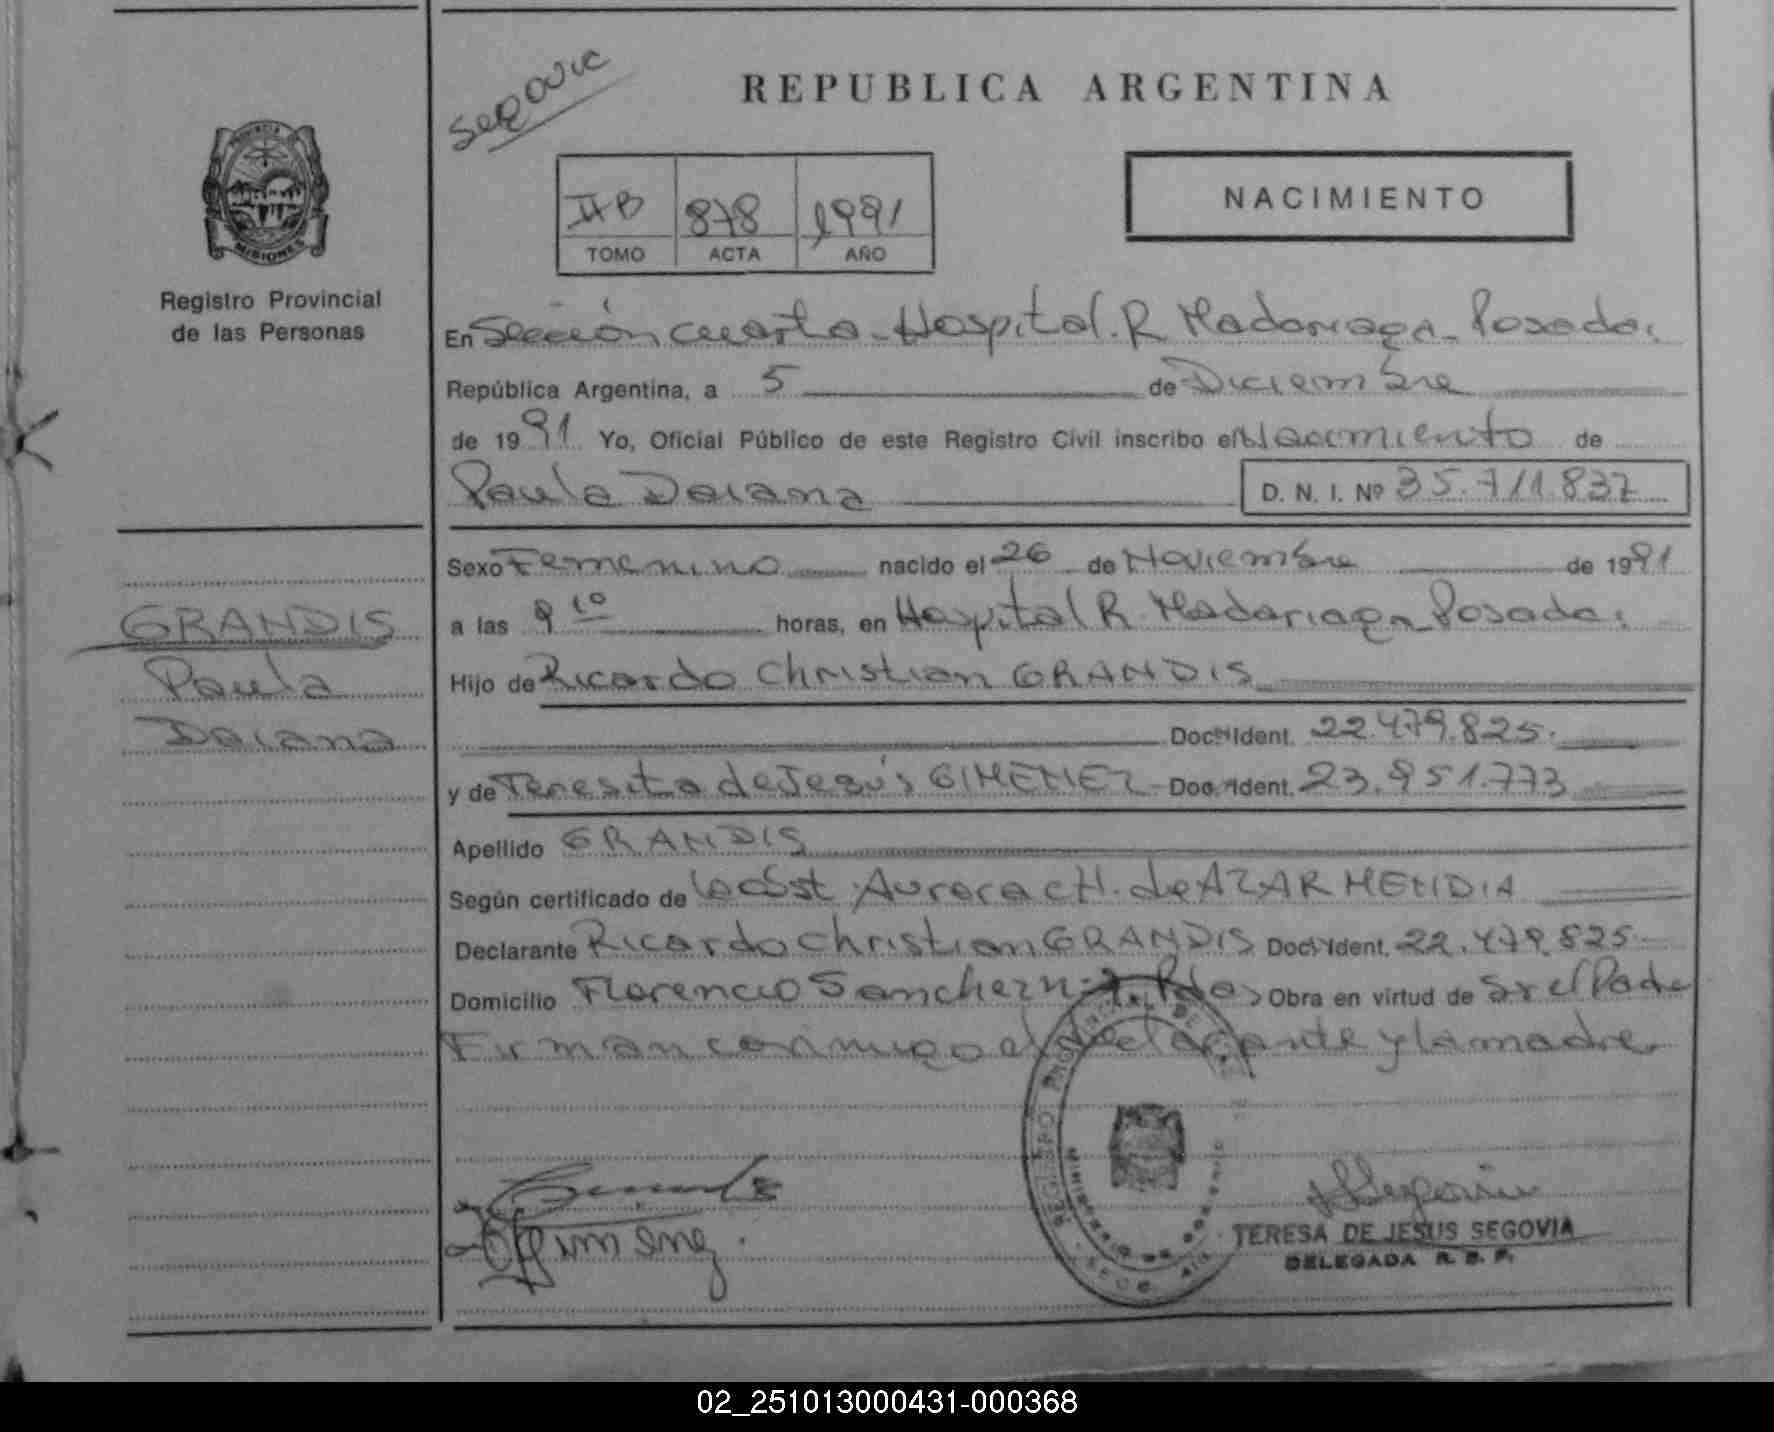 Segovia
REPUBLICA ARGENTINA
PROVINCIA DE
MISIONES
IIB 878 1991
TOMO ACTA AÑO
NACIMIENTO
Registro Provincial
de las Personas
En Sección cuarta - Hospital. R Madariaga - Posadas
República Argentina, a 5 de Diciembre
de 1991 Yo, Oficial Público de este Registro Civil inscribo el Nacimiento de
Paula Daiana D. N. I. Nº 35.711.837
Sexo Femenino nacido el 26 de Noviembre de 1991
a las 9 10 horas, en Hospital R. Madariaga Posadas
Hijo de Ricardo Christian GRANDIS
Doc. Ident. 22.479.825.
y de Teresita de Jesús GIMENEZ - Doc. Ident. 23.951.773
Apellido GRANDIS
Según certificado de la Obst. Aurora CH. de AZARMENDIA
Declarante Ricardo Christian GRANDIS Doc. Ident. 22.479.825.
Domicilio Florencio Sanchez Pdas Obra en virtud de Sr el Padre
Firman conmigo el declarante y la madre
GRANDIS
Paula
Daiana
REGISTRO PROVINCIAL DE
MINISTERIO DE GOBIERNO
Gimenez.
TERESA DE JESUS SEGOVIA
DELEGADA R. B. P.
02_251013000431-000368